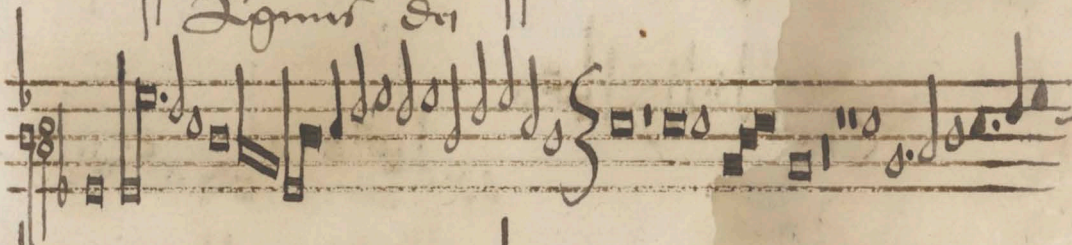 Agnus dei